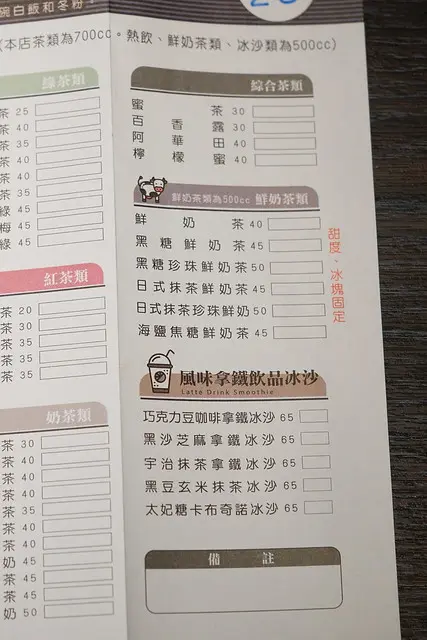 碗白飯和冬粉
(本店茶類為700cc。熱飲、鮮奶茶類、冰沙類為500cc)
綠茶類
茶 25
茶 40
茶 35
茶 40
茶 40
茶 35
綠 45
梅 45
綠 45
紅茶類
茶 20
茶 30
茶 35
茶 35
茶 35
奶茶類
茶 30
茶 40
茶 40
茶 40
茶 35
茶 40
茶 40
茶 45
茶 45
奶 50
綜合茶類
蜜茶 30
百香露 30
阿華田 40
檸檬蜜 40
鮮奶茶類為500cc 鮮奶茶類
鮮奶茶 40
黑糖鮮奶茶 45
黑糖珍珠鮮奶茶 50
日式抹茶鮮奶茶 45
日式抹茶珍珠鮮奶 50
海鹽焦糖鮮奶茶 45
甜度、冰塊固定
風味拿鐵飲品冰沙
Latte Drink Smoothie
巧克力豆咖啡拿鐵冰沙 65
黑沙芝麻拿鐵冰沙 65
宇治抹茶拿鐵冰沙 65
黑豆玄米抹茶冰沙 65
太妃糖卡布奇諾冰沙 65
備註